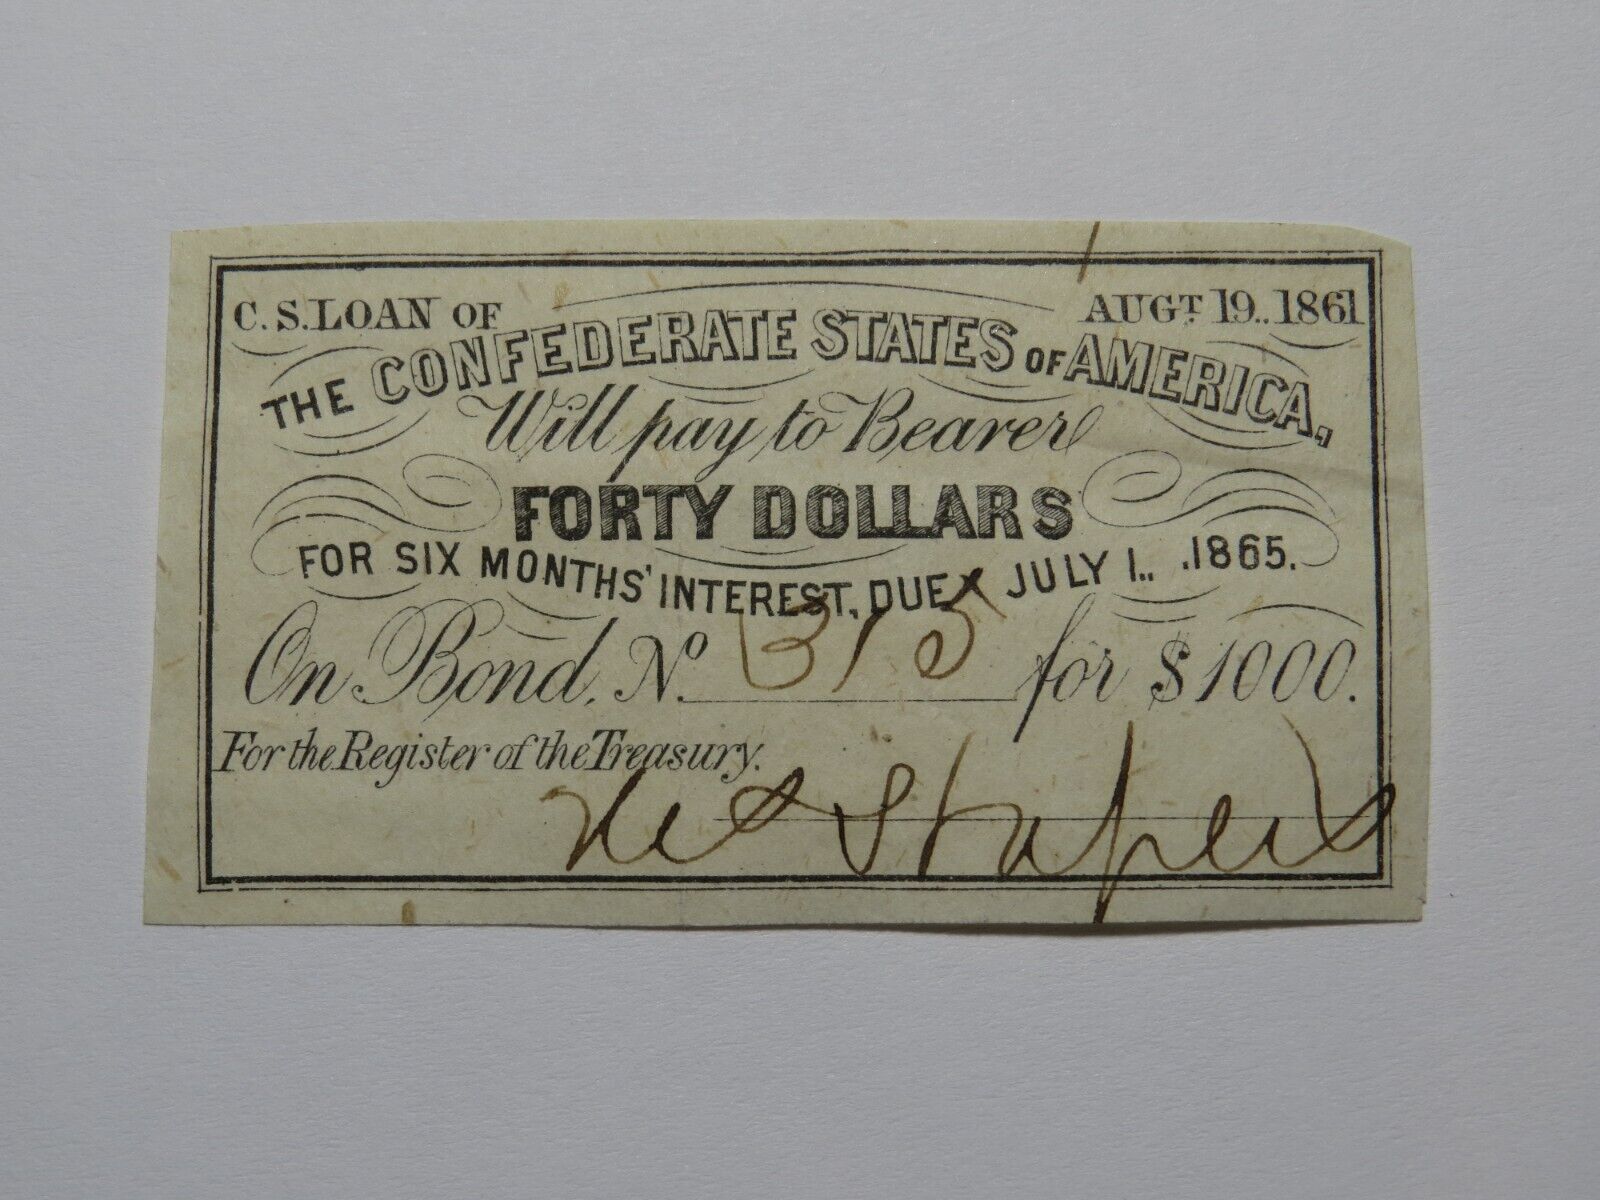 C. S. LOAN OF AUGT. 19.. 1861
THE CONFEDERATE STATES OF AMERICA,
Will pay to Bearer
FORTY DOLLARS
FOR SIX MONTHS' INTEREST, DUE JULY 1.. .1865.
On Bond, No. 315 for $1000.
For the Register of the Treasury.